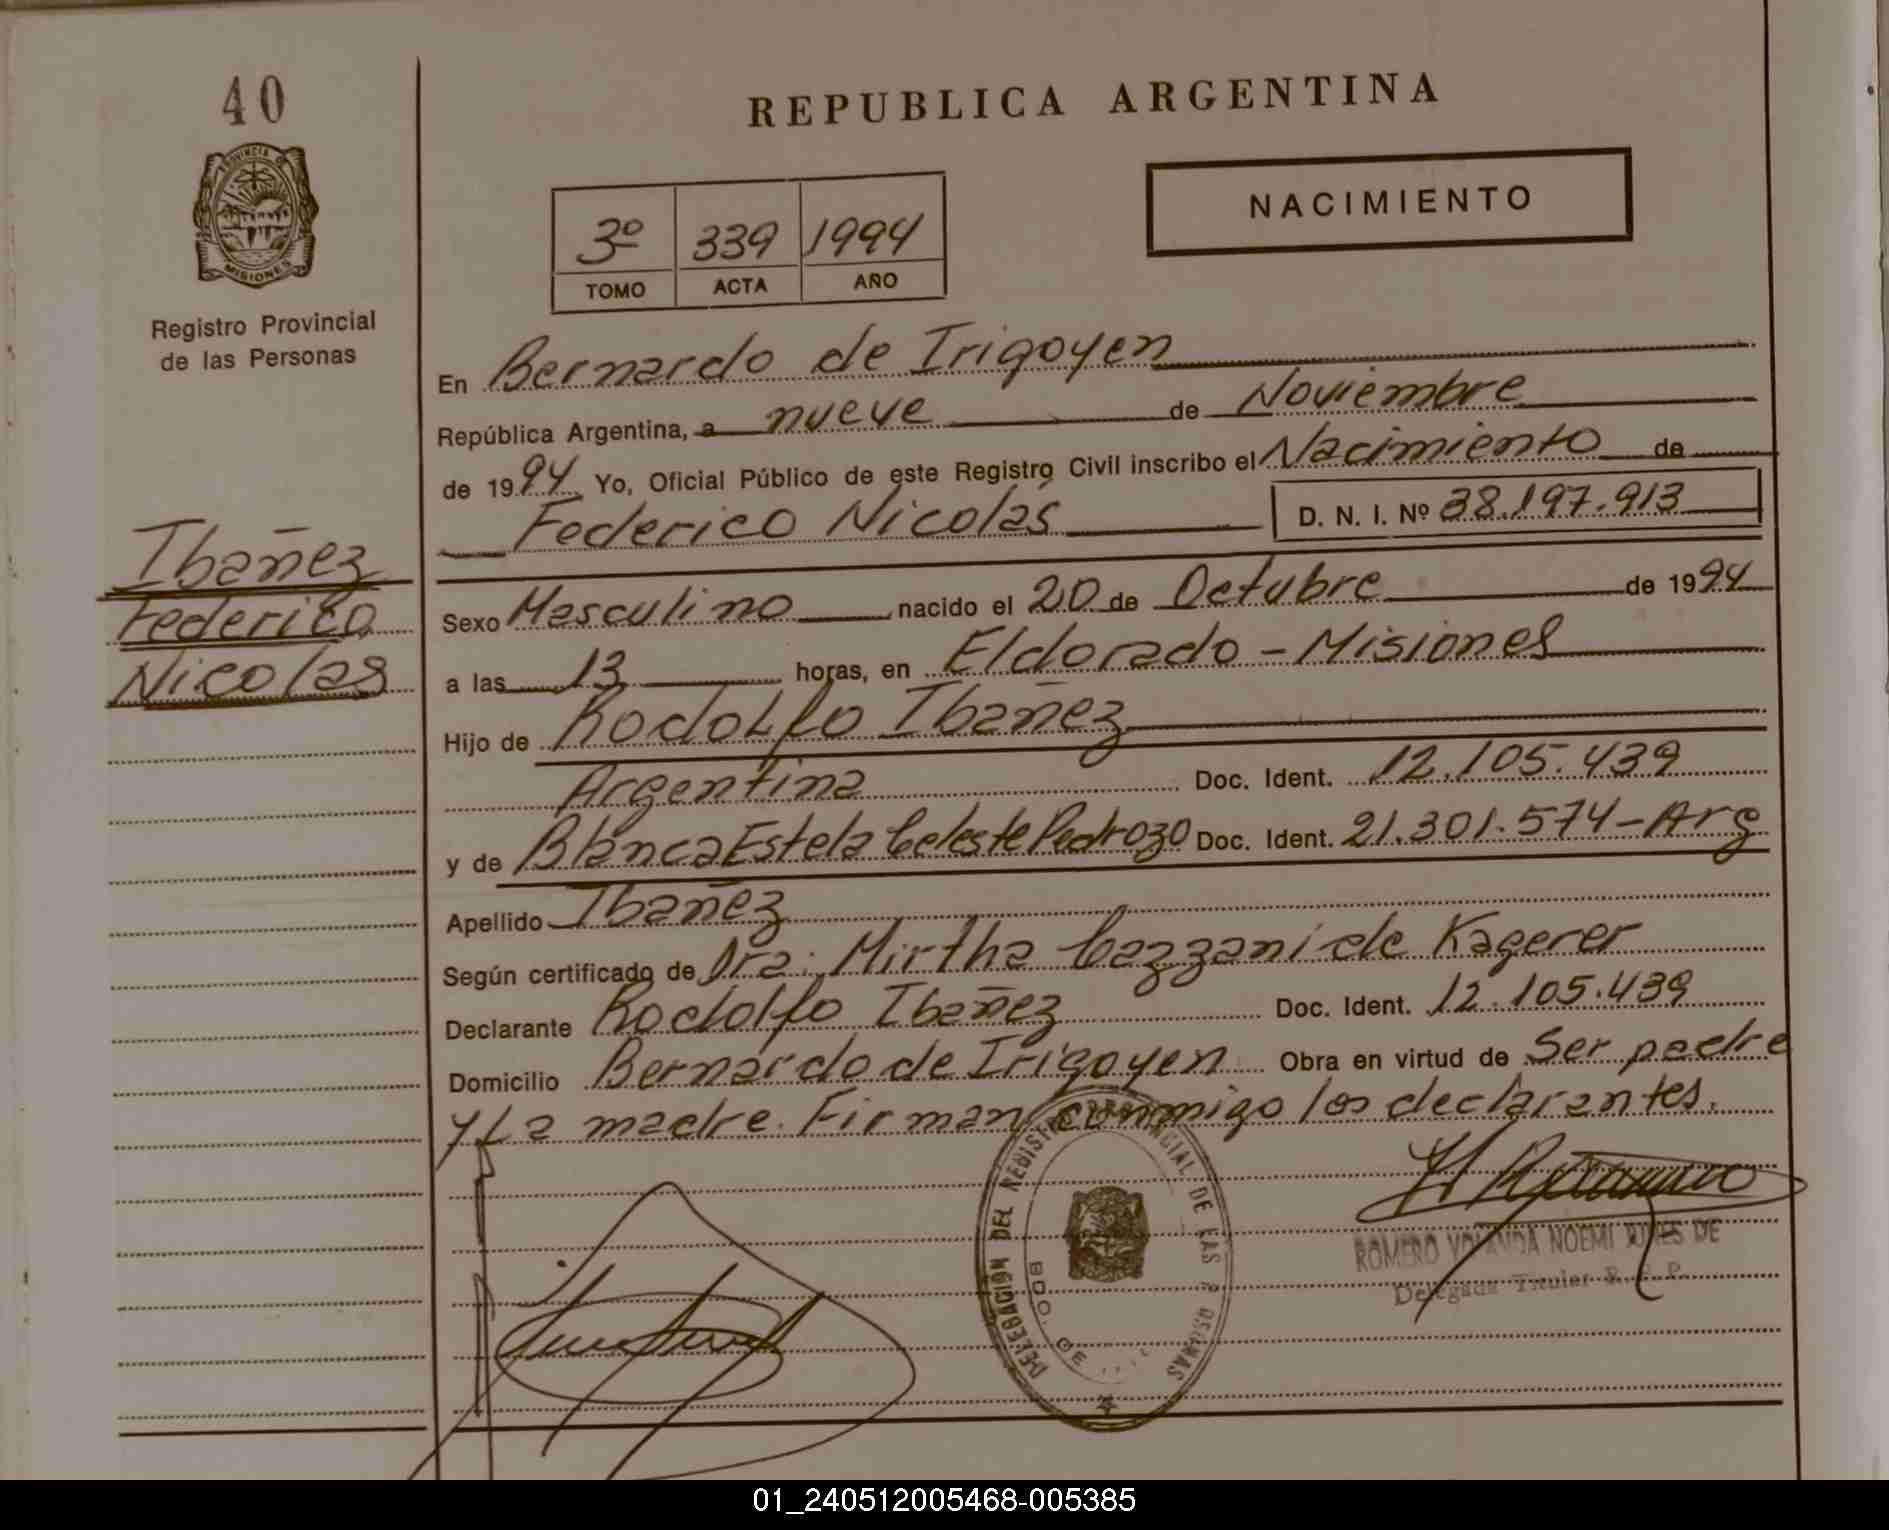 40
PROVINCIA DE
MISIONES
Registro Provincial
de las Personas
Ibañez
Federico
Nicolas
REPUBLICA ARGENTINA
3º 339 1994
TOMO ACTA AÑO
NACIMIENTO
En Bernardo de Irigoyen
República Argentina, a nueve de Noviembre
de 1994 Yo, Oficial Público de este Registro Civil inscribo el Nacimiento de
Federico Nicolás D. N. I. Nº 38.197.913
Sexo Masculino nacido el 20 de Octubre de 1994
a las 13 horas, en Eldorado - Misiones
Hijo de Rodolfo Ibañez
Argentina Doc. Ident. 12.105.439
y de Blanca Estela Celeste Pedrozo Doc. Ident. 21.301.574-Arg
Apellido Ibañez
Según certificado de Dra. Mirtha Cazzani de Kagerer
Declarante Rodolfo Ibañez Doc. Ident. 12.105.439
Domicilio Bernardo de Irigoyen Obra en virtud de Ser padre
y La madre. Firman conmigo los declarantes.
DELEGACION DEL REGISTRO PROVINCIAL DE LAS PERSONAS
BDO. DE
ROMERO YOLANDA NOEMI DE
Delegada Titular R. P.
01_240512005468-005385